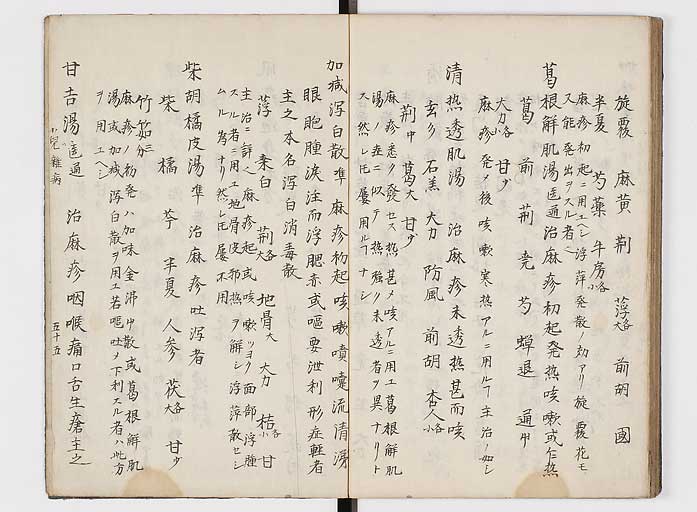 旋覆 麻黄 荆 薄各大 前胡 國
半夏 芍薬 牛房各小
麻疹初起ニ用エヘシ浮萍発散ノ効アリ旋覆花モ
又能発出ヲスル者ヘシ
葛根解肌湯 医通 治麻疹初起発熱咳嗽或乍熱
葛 前 荆 芍 蝉退 通中
大力各小 甘少
麻疹発メ後咳嗽寒熱アルニ用ルフ主治ノ如シ
清熱透肌湯 治麻疹未透熱甚而咳
玄參 石羔 大力 防風 前胡 杏人各小
荆中 葛大 甘少
麻疹悉ク発セス熱甚メ咳アルニ用エ葛根解肌
湯ノ症ニ似テ熱強ク未透者ヲ異ナリト
ス然レ𪜈屡用ルフナシ
加减瀉白散 準 麻疹初起咳嗽噴嚔流清涕
眼胞腫涙注而浮腮赤或嘔要泄利形症輕者
主之本名瀉白消毒散
浮 桑白 荆各大 地骨大 大力 桔各小 甘
主治ニ詳ヘシ麻疹起或咳嗽ツヨク面部浮腫
スル者ニ用エ地骨皮邪熱ヲ解シ浮萍散セシ
ムル為ナリ然レ𪜈屡不用
柴胡橘皮湯 準 治麻疹吐瀉者
柴 橘 芩 半夏 人参 茯各大 甘少
竹筎二分
麻疹ノ初発ハ加味金沸中散或葛根解肌
湯或加减瀉白散ヲ用エ若嘔吐メ下利スル者ハ此方
ヲ用エヘシ
甘吉湯 医通 治麻疹咽喉痛口舌生瘡主之
小兒雜病
五十五